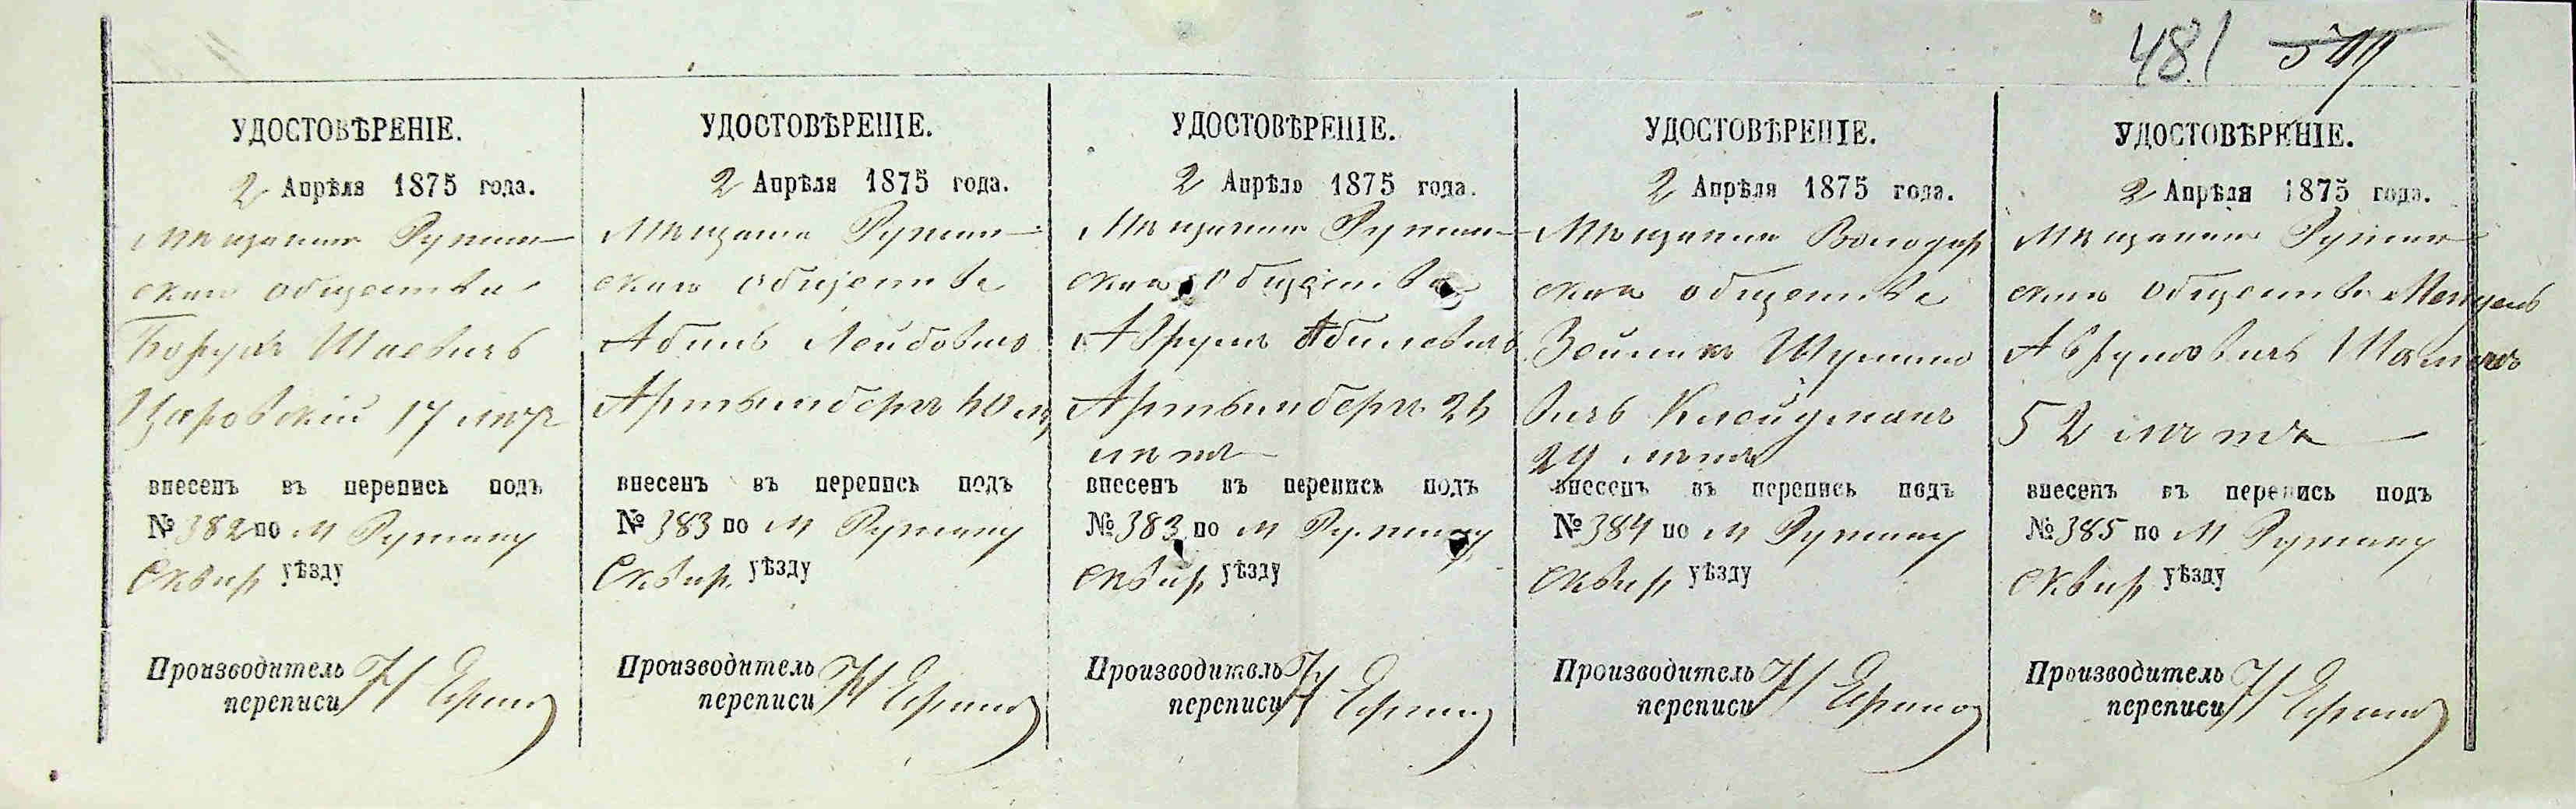 481 519
УДОСТОВѢРЕНІЕ.
2 Апрѣля 1875 года.
Мѣщанинъ Ружин
скаго общества
Борухъ Шаевичъ
Царовскій 17 лѣтъ
внесенъ въ перепись подъ
№ 382 по м Ружину
Сквир уѣзду
Производитель
переписи
УДОСТОВѢРЕНІЕ.
2 Апрѣля 1875 года.
Мѣщанинъ Ружин
скаго общества
Абель Лейбовичъ
Артенбергъ 40 л
внесенъ въ перепись подъ
№ 383 по м Ружину
Сквир уѣзду
Производитель
переписи
УДОСТОВѢРЕНІЕ.
2 Апрѣля 1875 года.
Мѣщанинъ Ружин
скаго общества
Аврумъ Абелевичъ
Артенбергъ
лѣтъ
внесенъ въ перепись подъ
№ 383 по м Ружину
Сквир уѣзду
Производитель
переписи
УДОСТОВѢРЕНІЕ.
2 Апрѣля 1875 года.
Мѣщанинъ Володар
скаго общества
Зейликъ Шулимо
вичъ Клейдманъ
29 лѣтъ
внесенъ въ перепись подъ
№ 384 по м Ружину
Сквир уѣзду
Производитель
переписи
УДОСТОВѢРЕНІЕ.
2 Апрѣля 1875 года.
Мѣщанинъ Ружин
скаго общества
Аврумовичъ
52 лѣтъ
внесенъ въ перепись подъ
№ 385 по м Ружину
Сквир уѣзду
Производитель
переписи